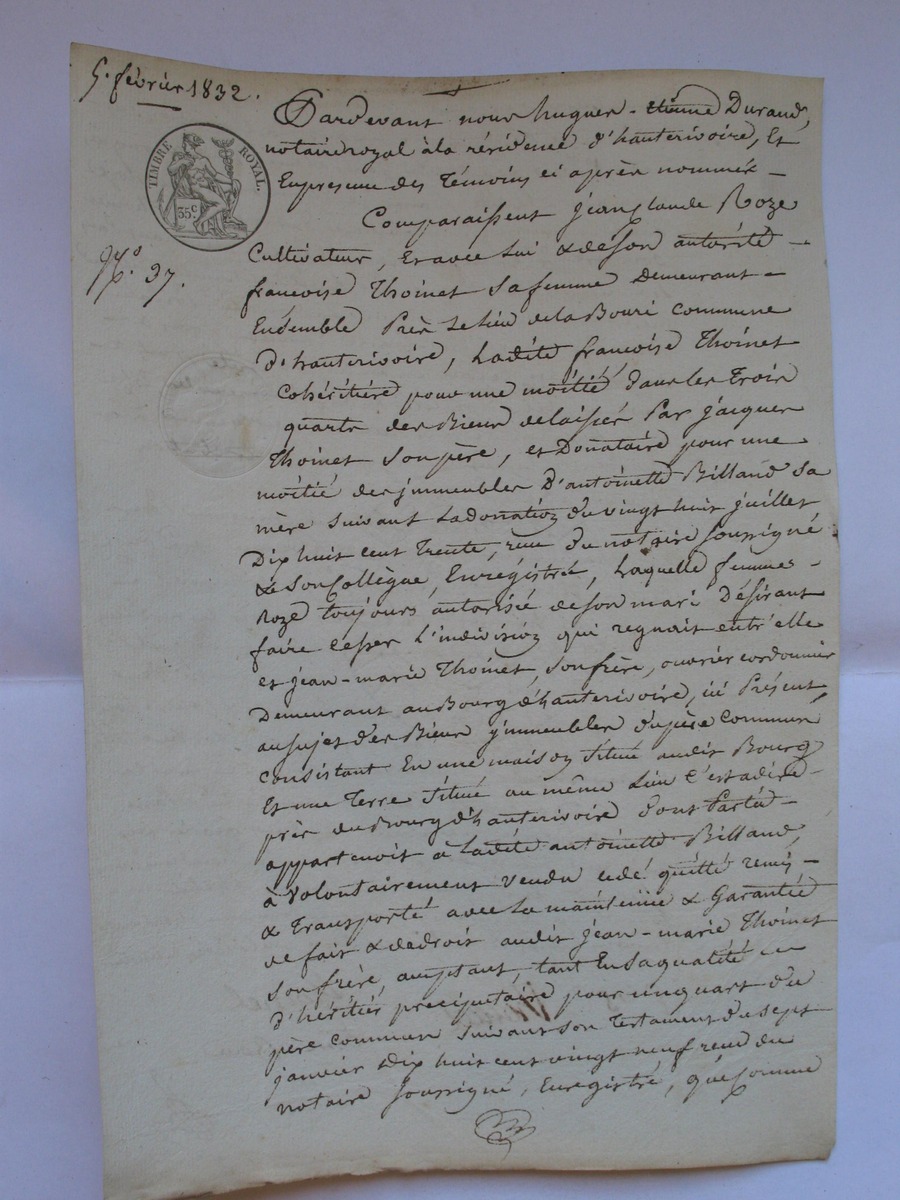 5. février 1832.
TIMBRE ROYAL.
35c
No. 37.
Pardevant nous hugues-etienne Durand,
notaire royal à la résidence d'hauterivoire, Et
En présence des Témoins ci après nommés —
Comparaissent jean Claude Roze
Cultivateur, Et avec lui & de son autorité —
francoise Thoinet sa femme Demeurant —
Ensemble Près Le lieu de la Bouri commune
d'hauterivoire, Ladite francoise Thoinet
Cohéritière pour une moitié dans les Trois
quarts des Biens delaissés Par jacques
Thoinet son père, et Donataire pour une
moitié des jmmeubles D'antoinette Billand sa
mère suivant La donation du vingt huit juillet
Dix huit cent Trente, reçue du notaire soussigné
& son Collègue, Enregistrée, Laquelle femme —
Roze toujours autorisé de son mari Désirant
faire Cesser L'indivision qui regnait entr'elle
et jean-marie Thoinet, son frère, ouvrier cordonnier
Demeurant au Bourg d'hauterivoire, ici Présent,
au sujet des Biens jmmeubles du père commun
Consistant En une maison située audit Bourg
Et une Terre située au même Lieu C'est adire —
près du Bourg d'hauterivoire dont Partie —
appartenoit à Ladite antoinette Billand,
à volontairement vendu cédé quitté remis —
& Transporté avec La maintenue & Garantie
de fait & de droit audit jean-marie Thoinet
son frère, acceptant, tant En sa qualité —
d'héritier preciputaire pour un quart du
père commun suivant son Testament du sept
janvier Dix huit cent vingt neuf reçu du
notaire soussigné, Enregistré, que comme